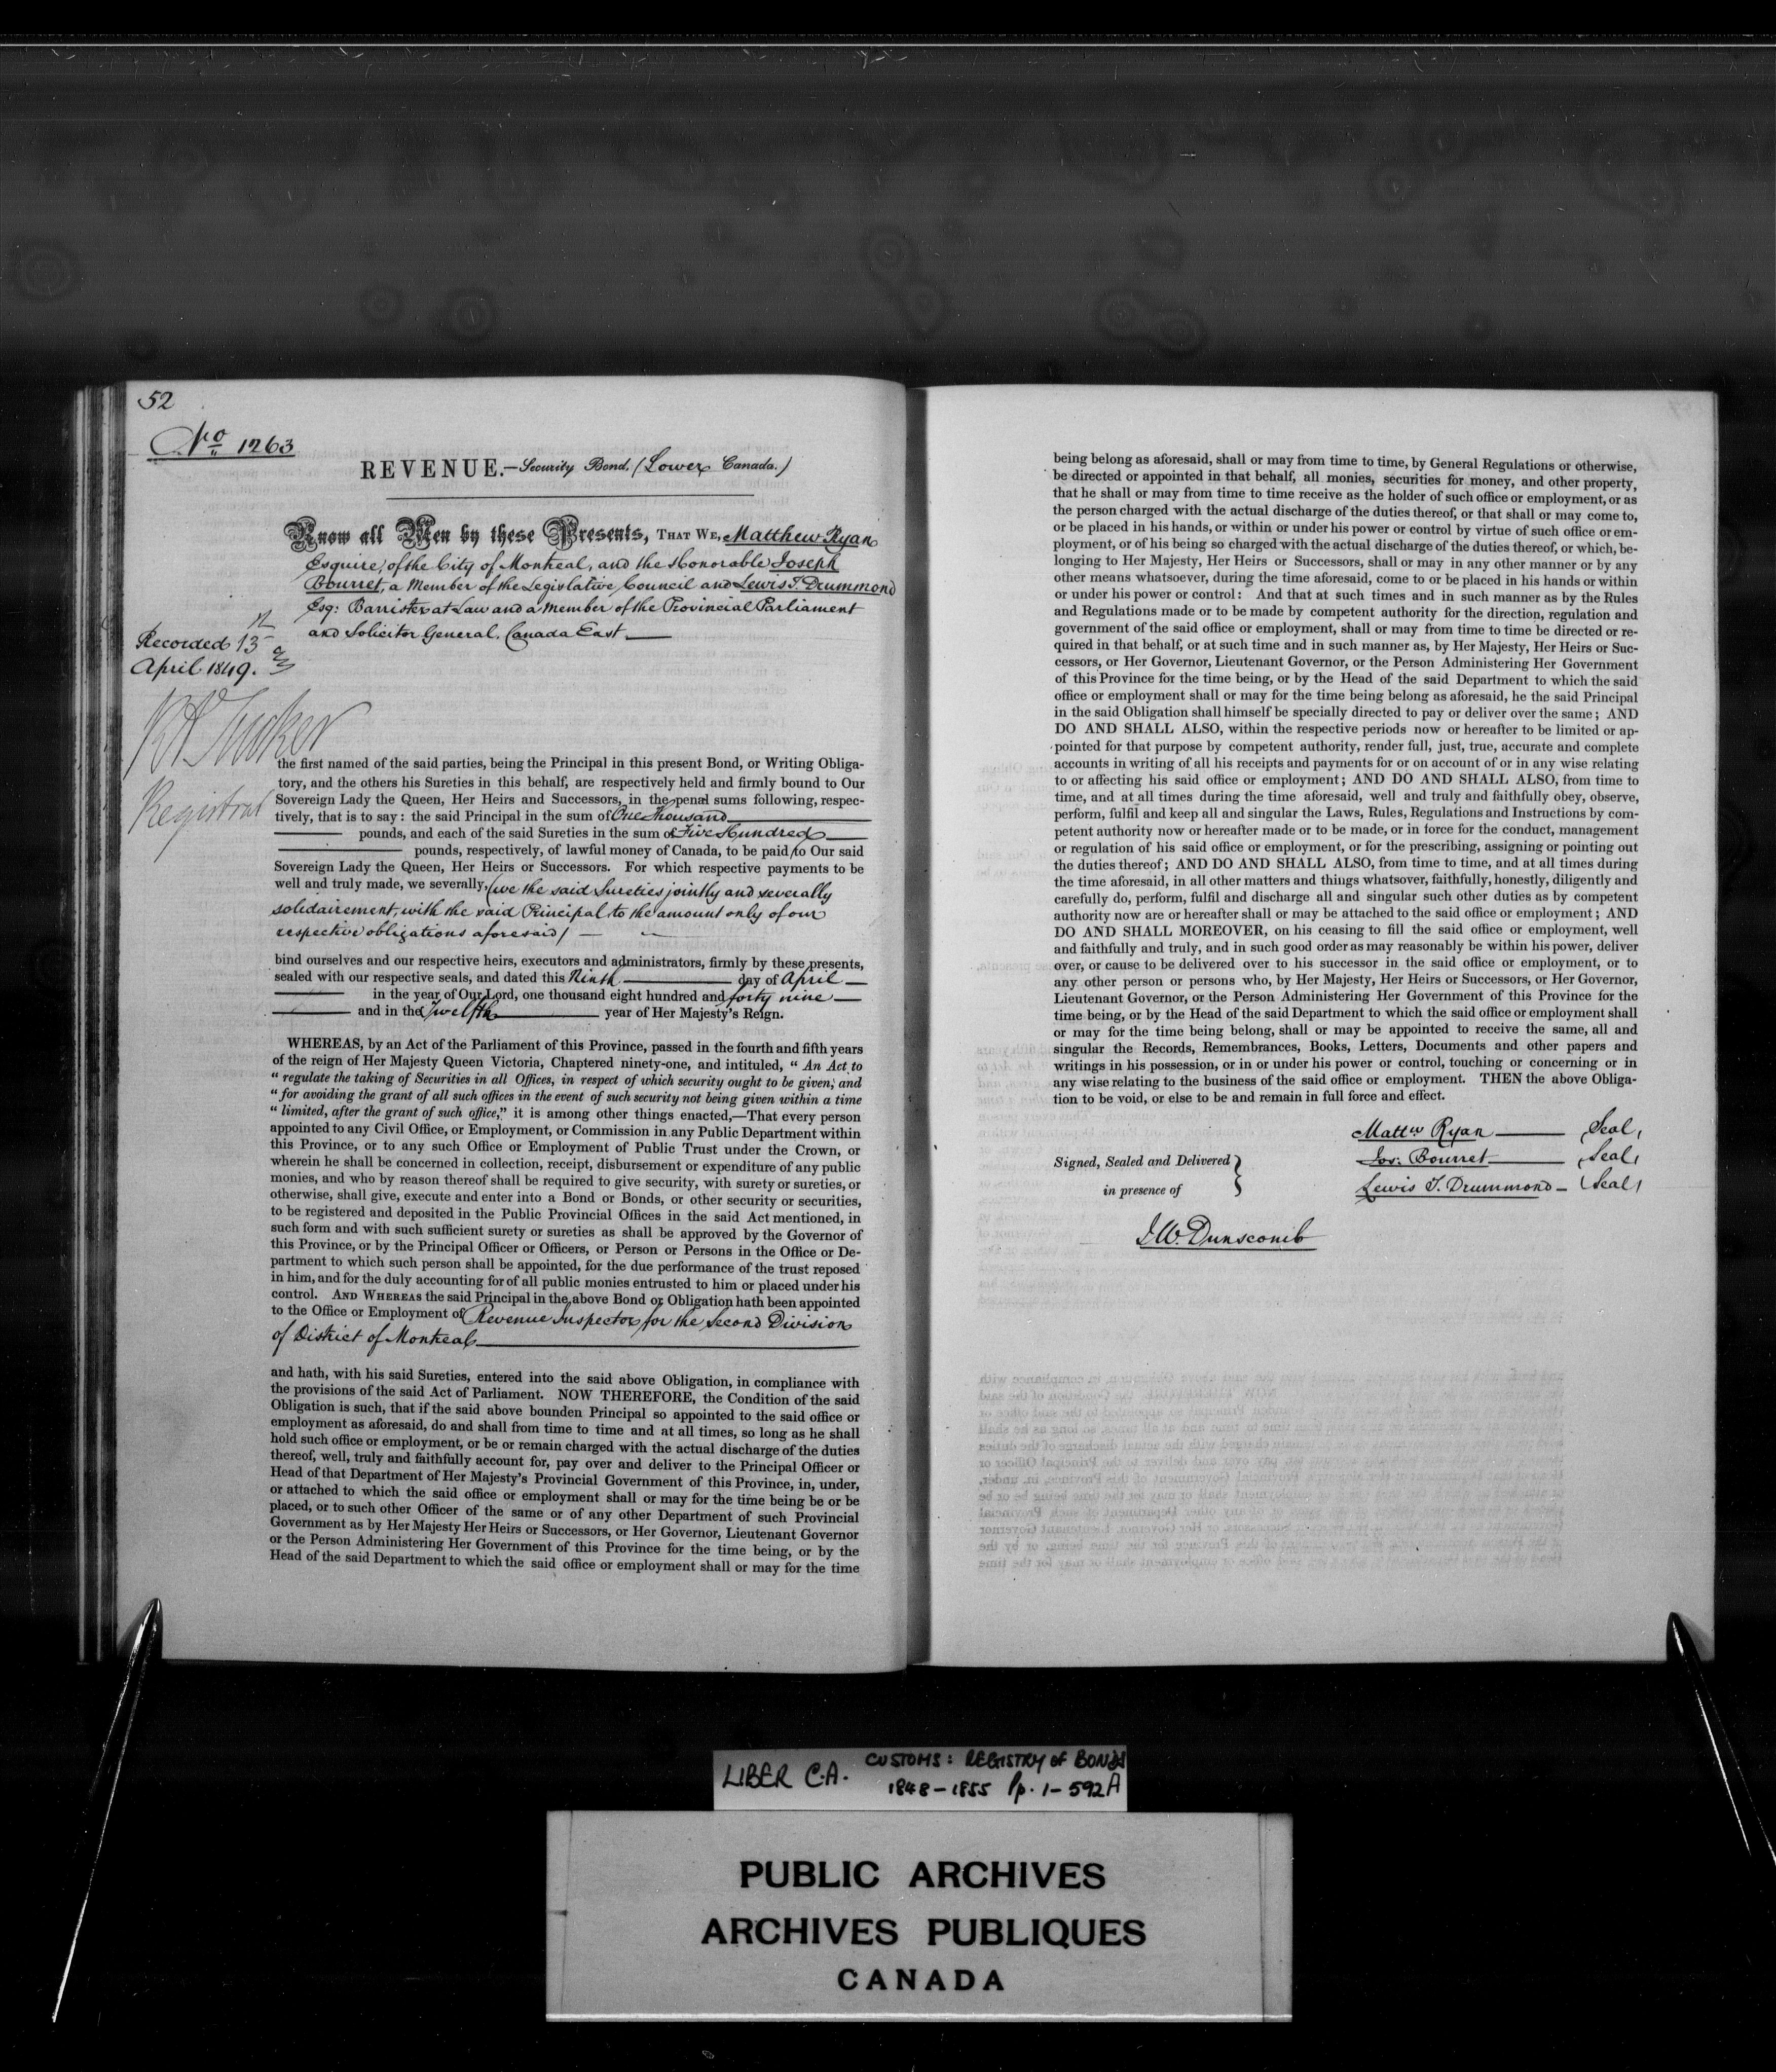 52
No 1263
REVENUE.—Security Bond. (Lower Canada.)
Know all Men by these Presents, THAT WE, Matthew Ryan
Esquire, of the City of Montreal, and the Honorable Joseph
Bourret, a Member of the Legislative Council and Lewis T. Drummond
Esq: Barrister at Law and a Member of the Provincial Parliament
and Solicitor General. Canada East
Recorded 13th
April 1849.
R A Tucker
Registrar
the first named of the said parties, being the Principal in this present Bond, or Writing Obliga-
tory, and the others his Sureties in this behalf, are respectively held and firmly bound to Our
Sovereign Lady the Queen, Her Heirs and Successors, in the penal sums following, respec-
tively, that is to say: the said Principal in the sum of One Thousand
pounds, and each of the said Sureties in the sum of Five Hundred
pounds, respectively, of lawful money of Canada, to be paid to Our said
Sovereign Lady the Queen, Her Heirs or Successors. For which respective payments to be
well and truly made, we severally, (we the said Sureties jointly and severally
solidairement, with the said Principal to the amount only of our
respective obligations aforesaid)
bind ourselves and our respective heirs, executors and administrators, firmly by these presents,
sealed with our respective seals, and dated this Ninth day of April
in the year of Our Lord, one thousand eight hundred and forty nine
and in the Twelfth year of Her Majesty's Reign.
WHEREAS, by an Act of the Parliament of this Province, passed in the fourth and fifth years
of the reign of Her Majesty Queen Victoria, Chaptered ninety-one, and intituled, " An Act to
" regulate the taking of Securities in all Offices, in respect of which security ought to be given; and
" for avoiding the grant of all such offices in the event of such security not being given within a time
" limited, after the grant of such office," it is among other things enacted,—That every person
appointed to any Civil Office, or Employment, or Commission in any Public Department within
this Province, or to any such Office or Employment of Public Trust under the Crown, or
wherein he shall be concerned in collection, receipt, disbursement or expenditure of any public
monies, and who by reason thereof shall be required to give security, with surety or sureties, or
otherwise, shall give, execute and enter into a Bond or Bonds, or other security or securities,
to be registered and deposited in the Public Provincial Offices in the said Act mentioned, in
such form and with such sufficient surety or sureties as shall be approved by the Governor of
this Province, or by the Principal Officer or Officers, or Person or Persons in the Office or De-
partment to which such person shall be appointed, for the due performance of the trust reposed
in him, and for the duly accounting for of all public monies entrusted to him or placed under his
control. AND WHEREAS the said Principal in the above Bond or Obligation hath been appointed
to the Office or Employment of Revenue Inspector for the Second Division
of District of Montreal
and hath, with his said Sureties, entered into the said above Obligation, in compliance with
the provisions of the said Act of Parliament. NOW THEREFORE, the Condition of the said
Obligation is such, that if the said above bounden Principal so appointed to the said office or
employment as aforesaid, do and shall from time to time and at all times, so long as he shall
hold such office or employment, or be or remain charged with the actual discharge of the duties
thereof, well, truly and faithfully account for, pay over and deliver to the Principal Officer or
Head of that Department of Her Majesty's Provincial Government of this Province, in, under,
or attached to which the said office or employment shall or may for the time being be or be
placed, or to such other Officer of the same or of any other Department of such Provincial
Government as by Her Majesty Her Heirs or Successors, or Her Governor, Lieutenant Governor
or the Person Administering Her Government of this Province for the time being, or by the
Head of the said Department to which the said office or employment shall or may for the time
being belong as aforesaid, shall or may from time to time, by General Regulations or otherwise,
be directed or appointed in that behalf, all monies, securities for money, and other property,
that he shall or may from time to time receive as the holder of such office or employment, or as
the person charged with the actual discharge of the duties thereof, or that shall or may come to,
or be placed in his hands, or within or under his power or control by virtue of such office or em-
ployment, or of his being so charged with the actual discharge of the duties thereof, or which, be-
longing to Her Majesty, Her Heirs or Successors, shall or may in any other manner or by any
other means whatsoever, during the time aforesaid, come to or be placed in his hands or within
or under his power or control: And that at such times and in such manner as by the Rules
and Regulations made or to be made by competent authority for the direction, regulation and
government of the said office or employment, shall or may from time to time be directed or re-
quired in that behalf, or at such time and in such manner as, by Her Majesty, Her Heirs or Suc-
cessors, or Her Governor, Lieutenant Governor, or the Person Administering Her Government
of this Province for the time being, or by the Head of the said Department to which the said
office or employment shall or may for the time being belong as aforesaid, he the said Principal
in the said Obligation shall himself be specially directed to pay or deliver over the same; AND
DO AND SHALL ALSO, within the respective periods now or hereafter to be limited or ap-
pointed for that purpose by competent authority, render full, just, true, accurate and complete
accounts in writing of all his receipts and payments for or on account of or in any wise relating
to or affecting his said office or employment; AND DO AND SHALL ALSO, from time to
time, and at all times during the time aforesaid, well and truly and faithfully obey, observe,
perform, fulfil and keep all and singular the Laws, Rules, Regulations and Instructions by com-
petent authority now or hereafter made or to be made, or in force for the conduct, management
or regulation of his said office or employment, or for the prescribing, assigning or pointing out
the duties thereof; AND DO AND SHALL ALSO, from time to time, and at all times during
the time aforesaid, in all other matters and things whatsoever, faithfully, honestly, diligently and
carefully do, perform, fulfil and discharge all and singular such other duties as by competent
authority now are or hereafter shall or may be attached to the said office or employment; AND
DO AND SHALL MOREOVER, on his ceasing to fill the said office or employment, well
and faithfully and truly, and in such good order as may reasonably be within his power, deliver
over, or cause to be delivered over to his successor in the said office or employment, or to
any other person or persons who, by Her Majesty, Her Heirs or Successors, or Her Governor,
Lieutenant Governor, or the Person Administering Her Government of this Province for the
time being, or by the Head of the said Department to which the said office or employment shall
or may for the time being belong, shall or may be appointed to receive the same, all and
singular the Records, Remembrances, Books, Letters, Documents and other papers and
writings in his possession, or in or under his power or control, touching or concerning or in
any wise relating to the business of the said office or employment. THEN the above Obliga-
tion to be void, or else to be and remain in full force and effect.
Mattw Ryan (Seal)
Signed, Sealed and Delivered } Jos: Bourret (Seal)
in presence of Lewis T. Drummond (Seal)
J W. Dunscomb
LIBER C.A. CUSTOMS: REGISTRY of BONDS
1848-1855 Pp. 1-592A
PUBLIC ARCHIVES
ARCHIVES PUBLIQUES
CANADA